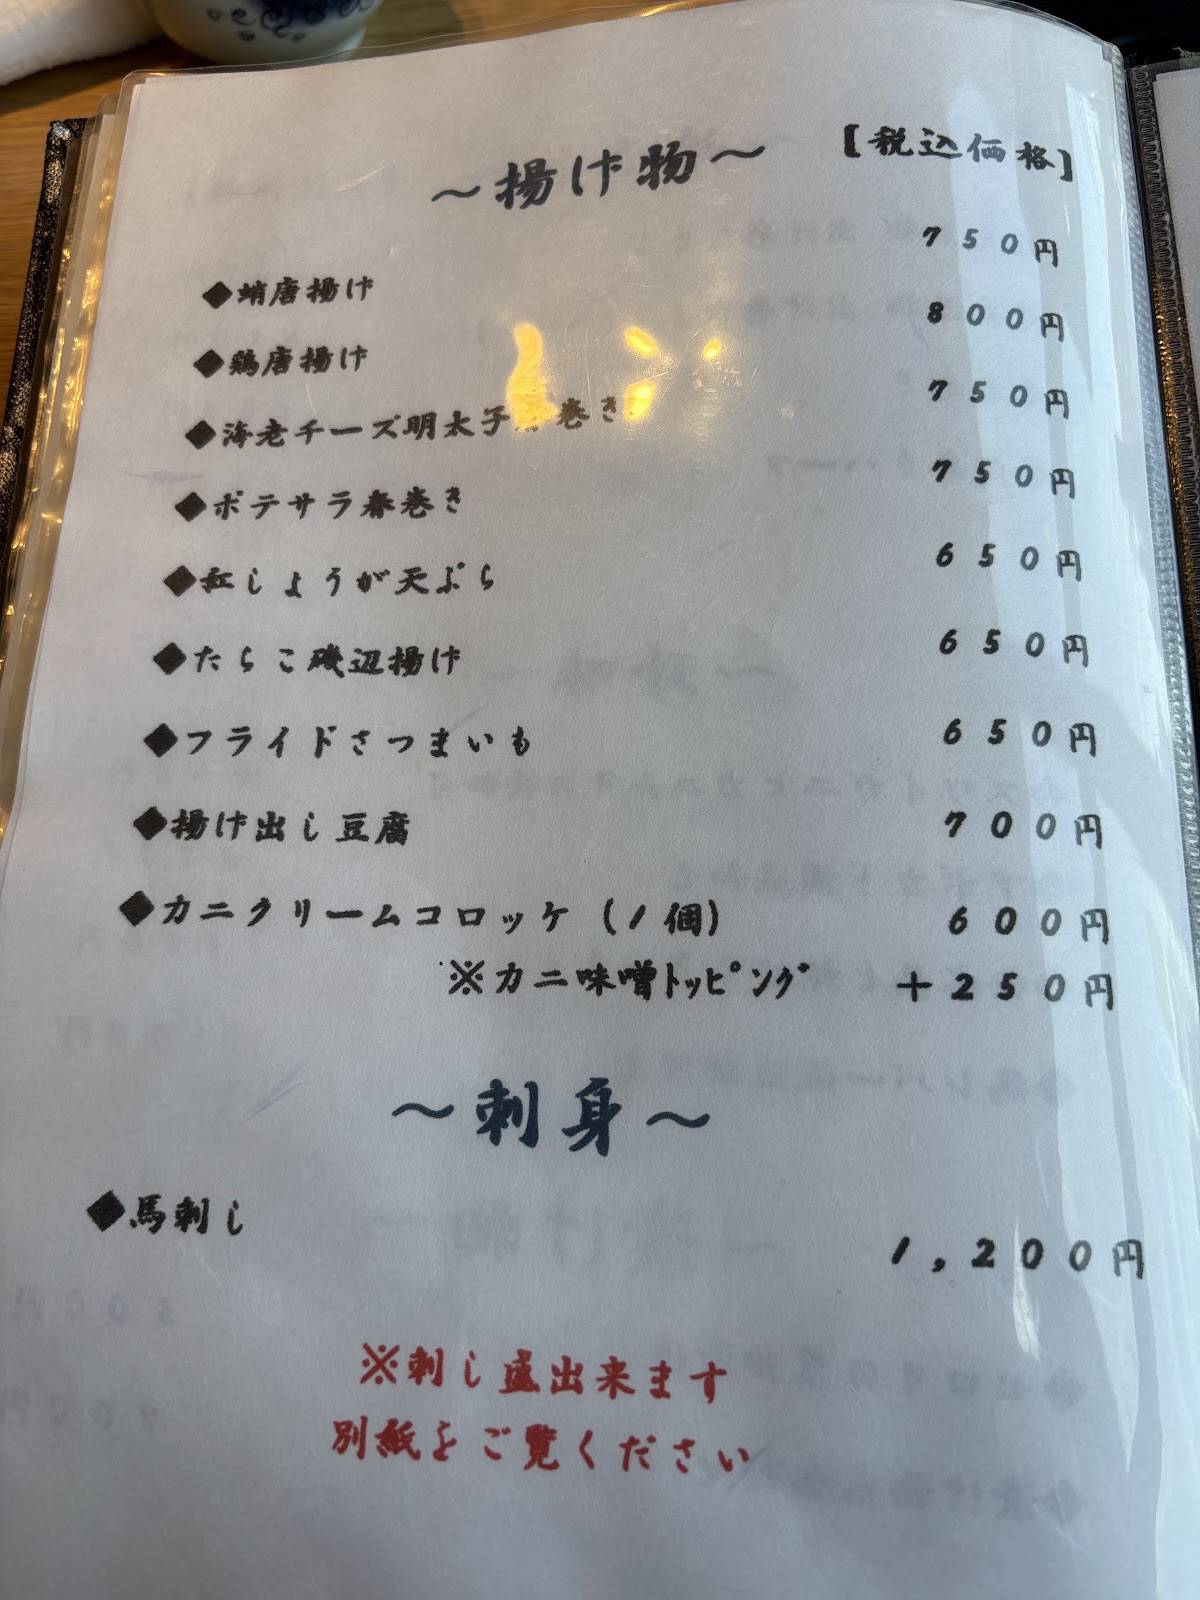 ～揚げ物～ 【税込価格】
◆蛸唐揚げ 750円
◆鶏唐揚げ 800円
◆海老チーズ明太子春巻き 750円
◆ポテサラ春巻き 750円
◆紅しょうが天ぷら 650円
◆たらこ磯辺揚げ 650円
◆フライドさつまいも 650円
◆揚げ出し豆腐 700円
◆カニクリームコロッケ（1個） 600円
※カニ味噌ﾄｯﾋﾟﾝｸﾞ ＋250円
～刺身～
◆馬刺し 1,200円
※刺し盛出来ます
別紙をご覧ください